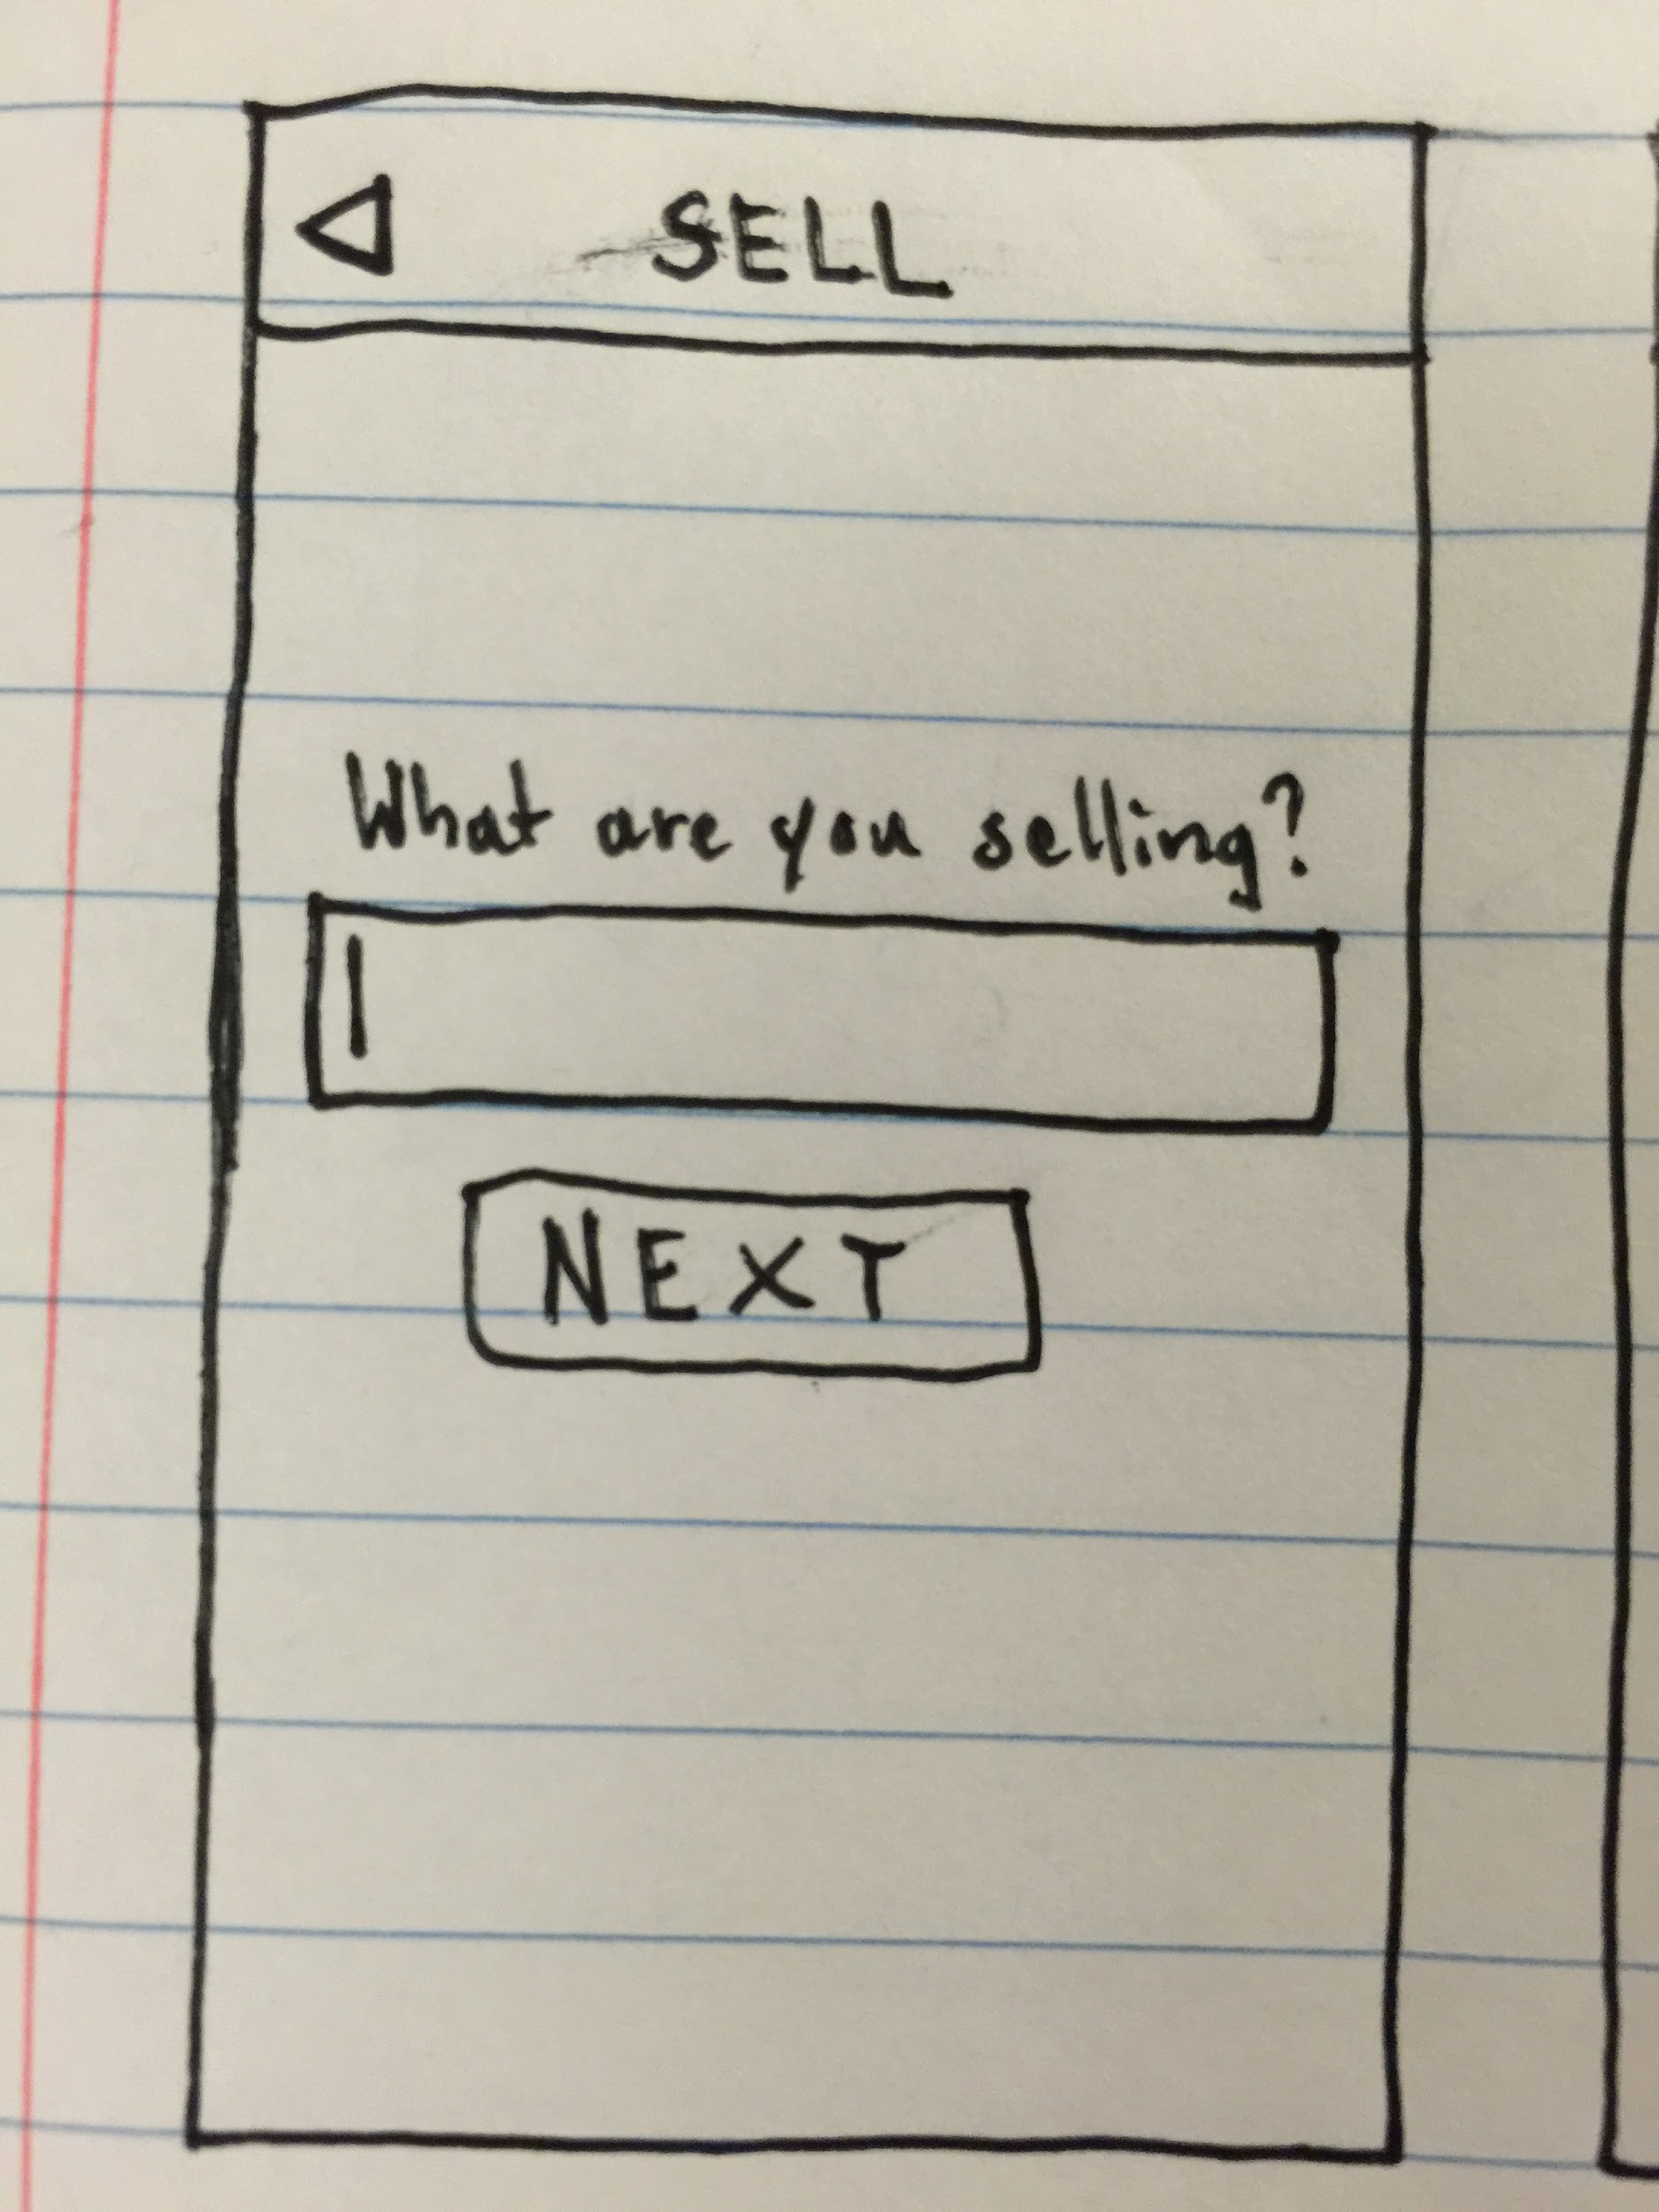 SELL
What are you selling?
NEXT